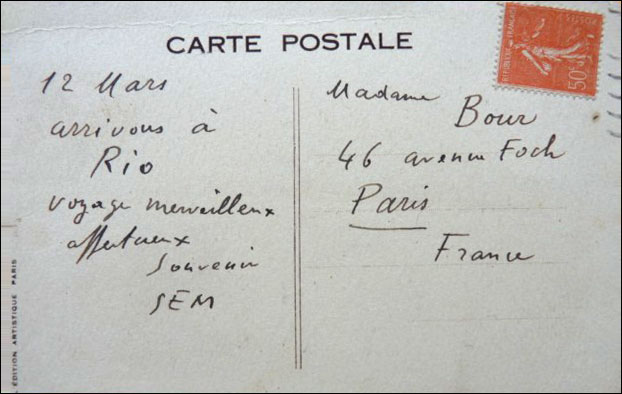 CARTE POSTALE
12 Mars
arrivons à
Rio
voyage merveilleux
affectueux
Souvenir
SEM
Madame
Bour
46 avenue Foch
Paris
France
50c
L'ÉDITION ARTISTIQUE PARIS